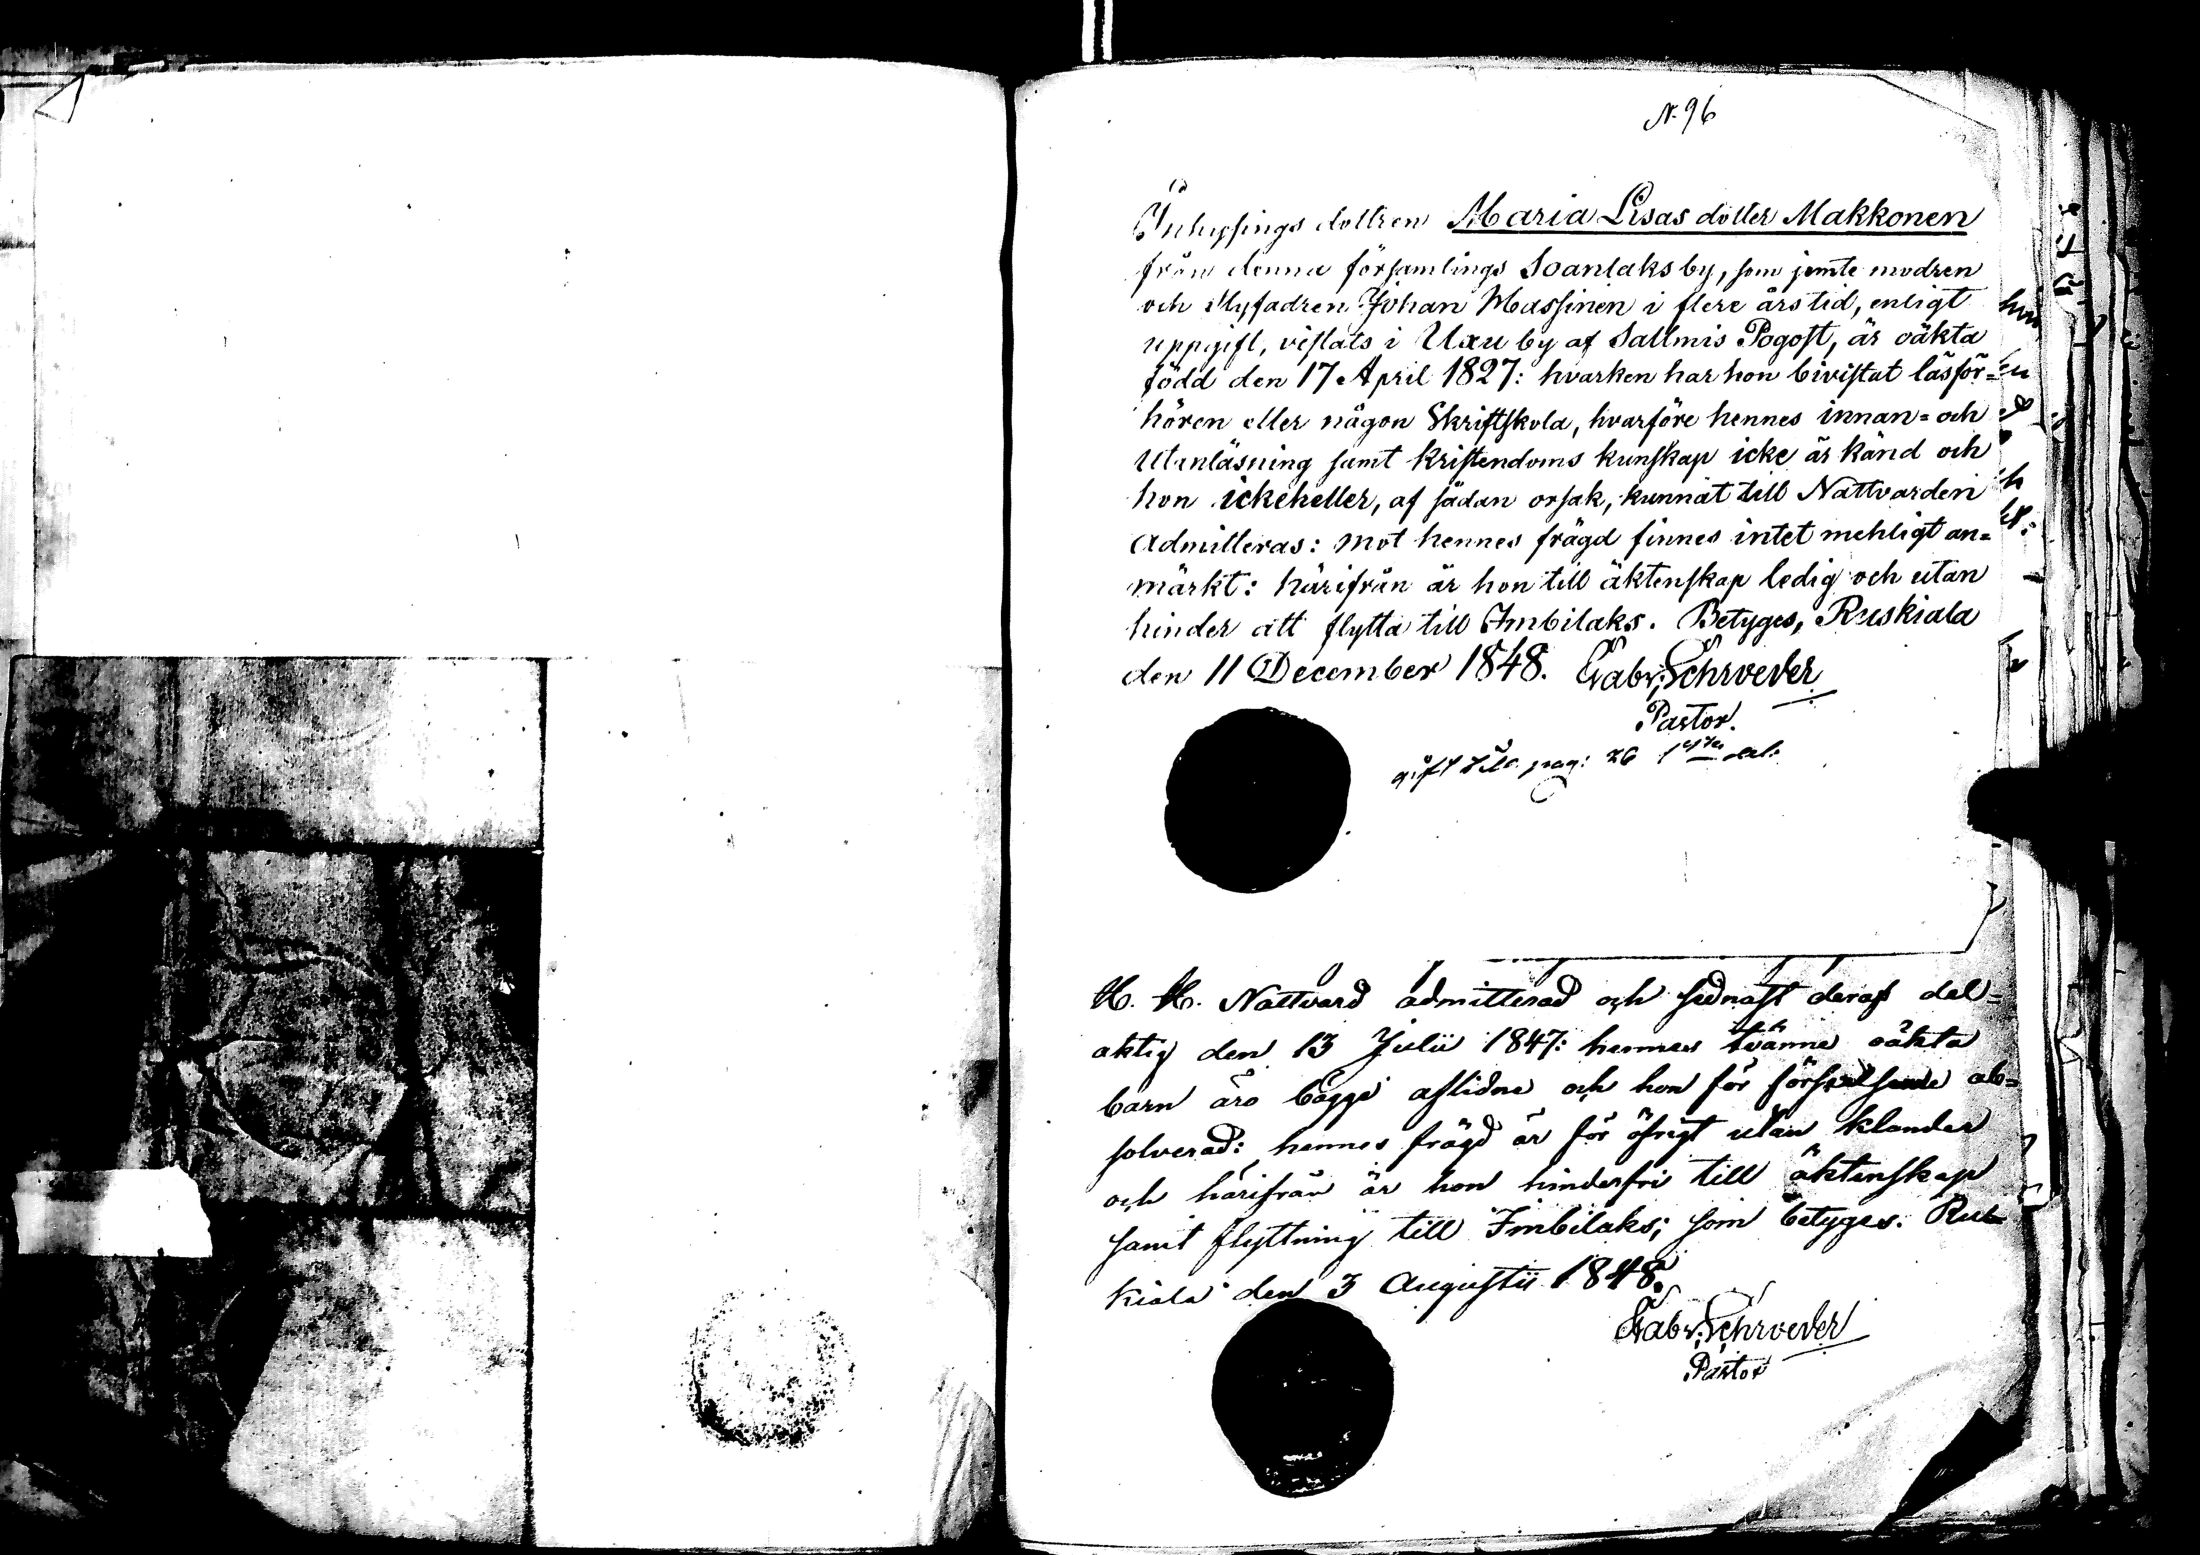 N. 96
Inhysings dottren Maria Lisas dotter Makkonen
från denna församlings Soanlaks by, som jemte modren
och styfadren Johan Massinen i flere års tid, enligt
uppgift, vistats i Uxu by af Sallmis Pogost, är oäkta
född den 17 April 1827: hvarken har hon bivistat läsför=
hören eller någon Skriftskola, hvarföre hennes innan= och
utanläsning samt kristendoms kunskap icke är känd och
hon ickeheller, af sådan orsak, kunnat till Nattvarden
admitteras: mot hennes frägd finnes intet mehligt an=
märkt: härifrån är hon till äktenskap ledig och utan
hinder att flytta till Imbilaks. Betyges, Ruskiala
den 11 December 1848. Gabr. Schroeder
Pastor.
gift till pag: 26 1 del.
H. H. Nattvard admitterad och sednast deraf del=
aktig den 13 Julii 1847: hennes tvänne oäkta
barn äro bägge aflidne och hon för förseelserne ab=
solverad: hennes frägd är för öfrigt utan klander
och härifrån är hon hinderfri till äktenskap
samt flyttning till Imbilaks; som betyges. Rus=
kiala den 3 Augustii 1848.
Gabr. Schroeder
Pastor